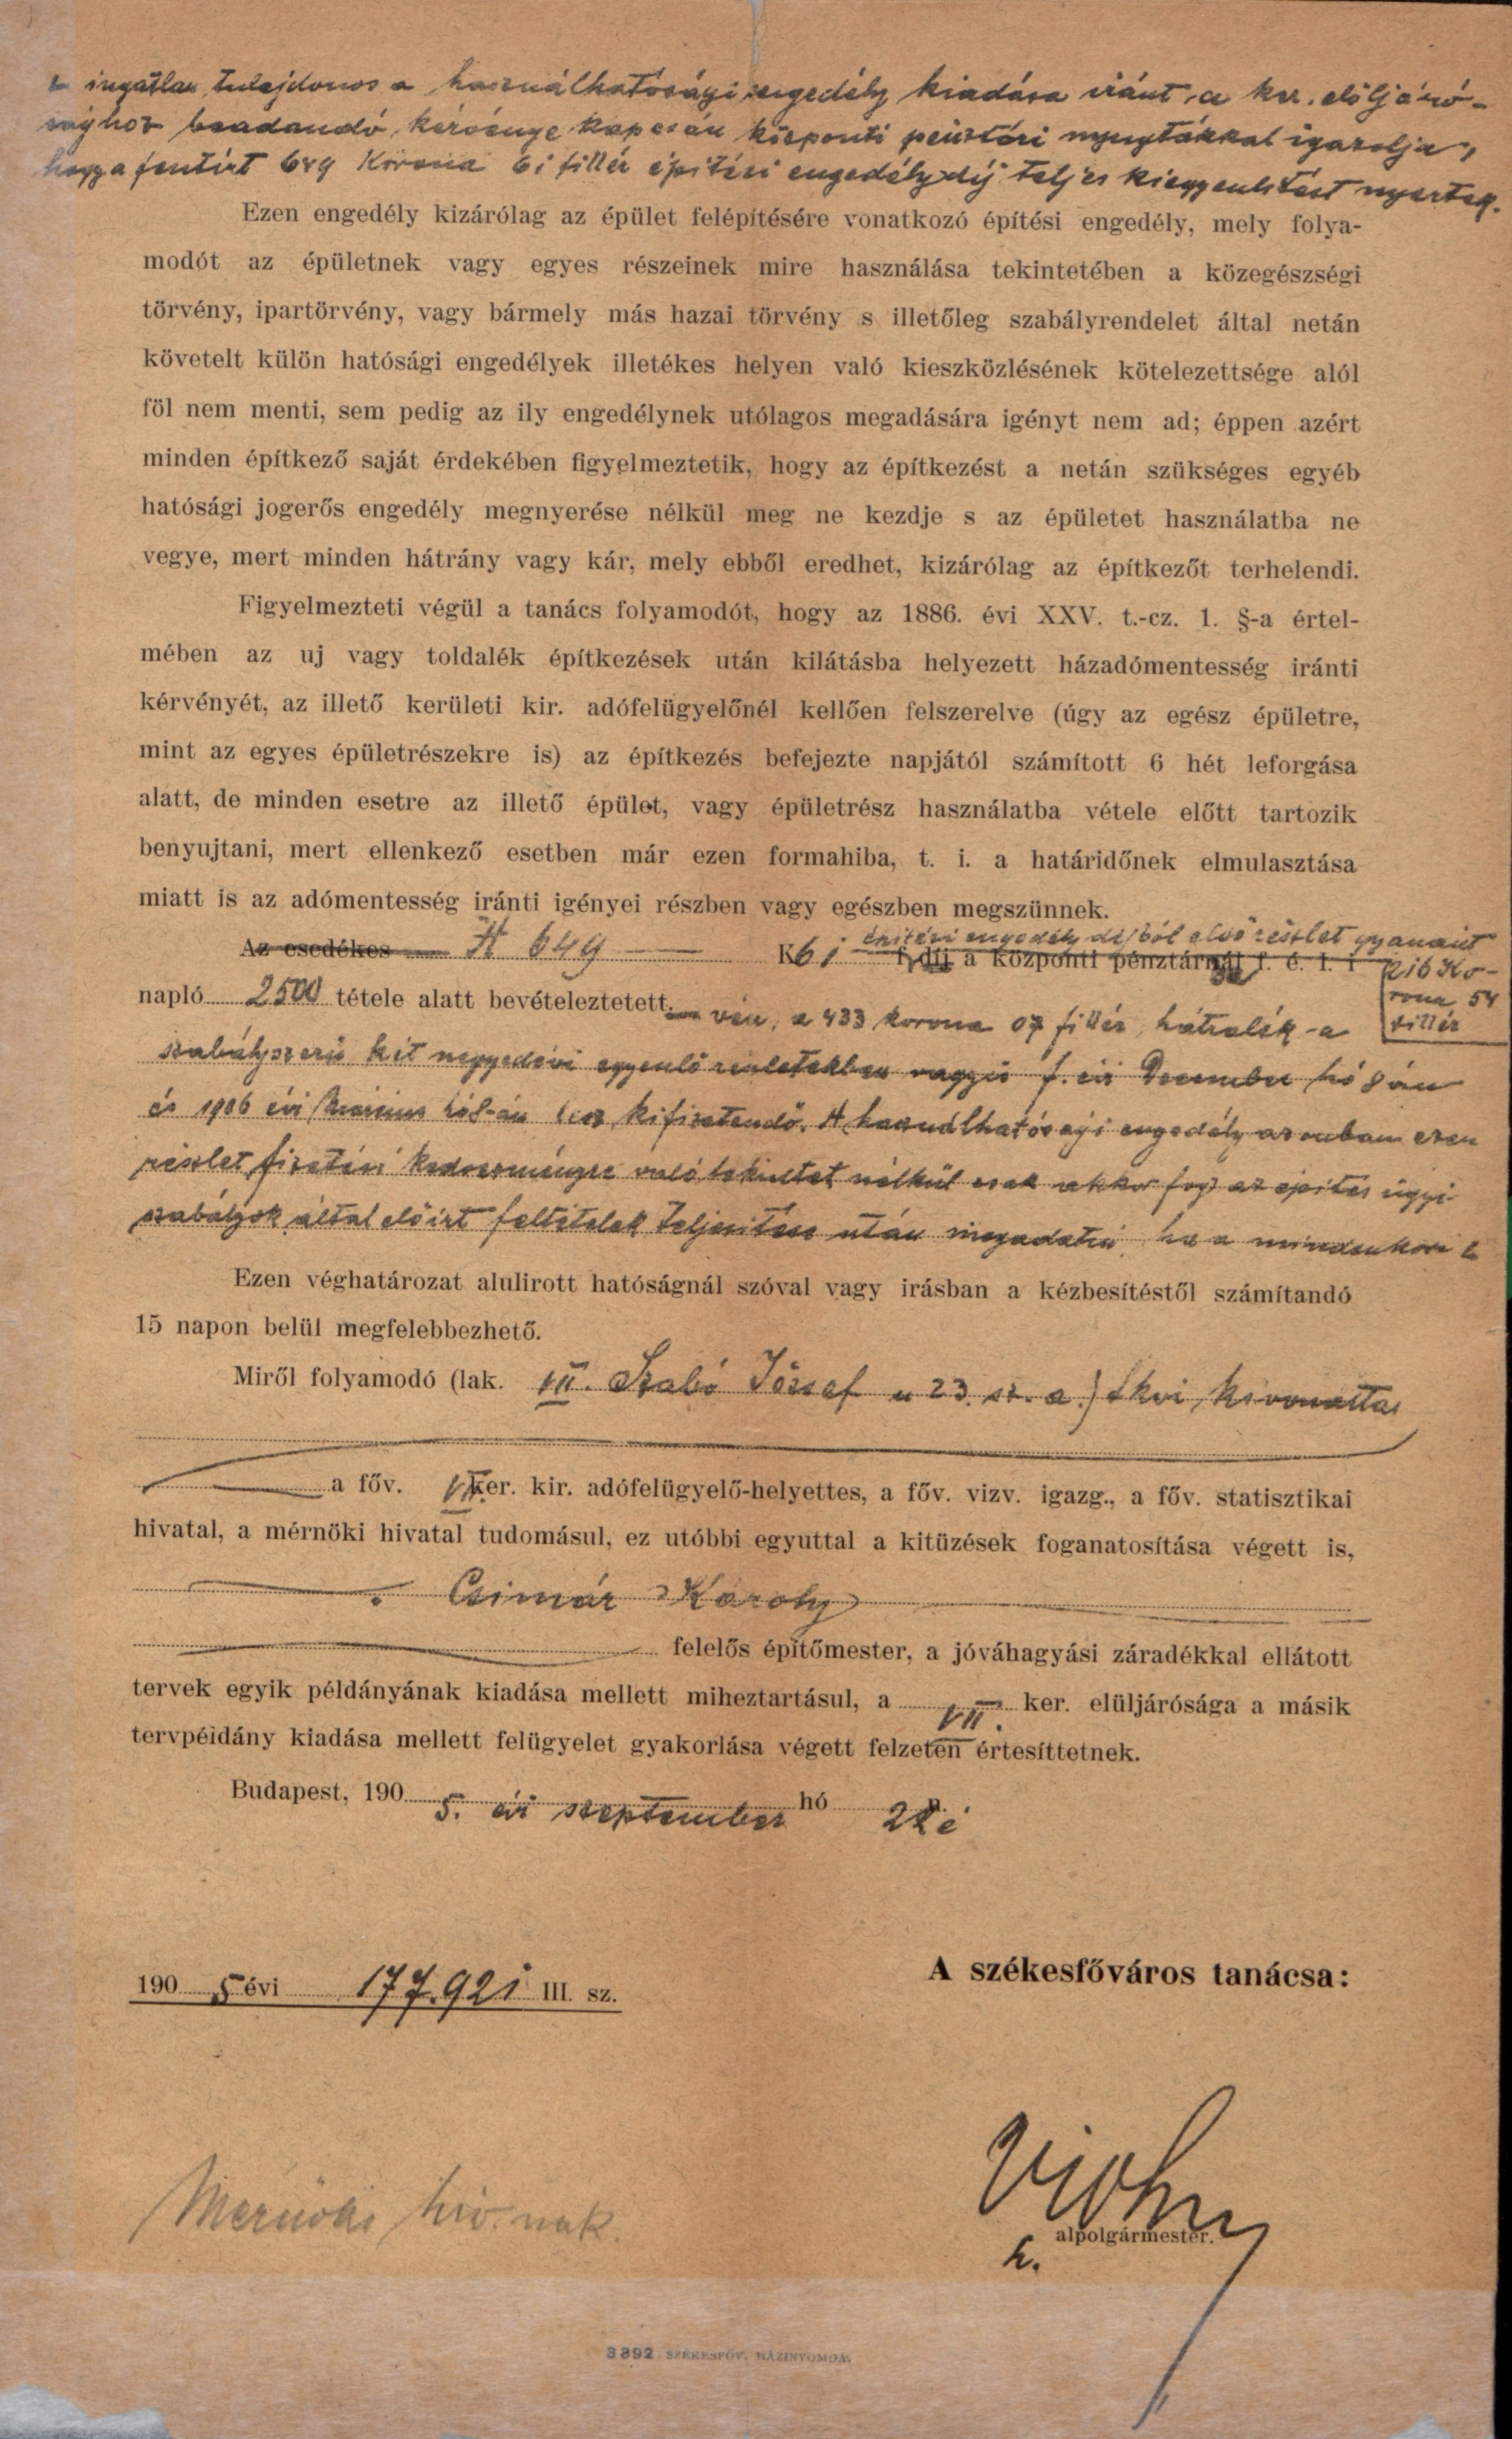 ingatlan tulajdonos a használhatósági engedély kiadása iránt, a ker. elöljáró-
sághoz beadandó kérvénye kapcsán központi pénztári nyugtákkal igazolja,
hogy a fentirt 649 Korona 61 fillér építési engedély díj teljes kiegyenlítést nyertek.
Ezen engedély kizárólag az épület felépítésére vonatkozó építési engedély, mely folya-
modót az épületnek vagy egyes részeinek mire használása tekintetében a közegészségi
törvény, ipartörvény, vagy bármely más hazai törvény s illetőleg szabályrendelet által netán
követelt külön hatósági engedélyek illetékes helyen való kieszközlésének kötelezettsége alól
föl nem menti, sem pedig az ily engedélynek utólagos megadására igényt nem ad; éppen azért
minden építkező saját érdekében figyelmeztetik, hogy az építkezést a netán szükséges egyéb
hatósági jogerős engedély megnyerése nélkül meg ne kezdje s az épületet használatba ne
vegye, mert minden hátrány vagy kár, mely ebből eredhet, kizárólag az építkezőt terhelendi.
Figyelmezteti végül a tanács folyamodót, hogy az 1886. évi XXV. t.-cz. 1. §-a értel-
mében az uj vagy toldalék építkezések után kilátásba helyezett házadómentesség iránti
kérvényét, az illető kerületi kir. adófelügyelőnél kellően felszerelve (úgy az egész épületre,
mint az egyes épületrészekre is) az építkezés befejezte napjától számított 6 hét leforgása
alatt, de minden esetre az illető épület, vagy épületrész használatba vétele előtt tartozik
benyujtani, mert ellenkező esetben már ezen formahiba, t. i. a határidőnek elmulasztása
miatt is az adómentesség iránti igényei részben vagy egészben megszünnek.
Az esedékes A 649 K 61 építési engedély díjból első részlet gyanánt
f. díj a központi pénztárnál f. é. 1. i 216 Ko-
rona 54
fillér
napló 2500 tétele alatt bevételeztetett. vén, a 433 korona 07 fillér hátralék a
szabályszerű két negyedévi egyenlő részletekben vagyis f. évi December hó 8 án
és 1906 évi Március hó 8-án lesz kifizetendő. A használhatósági engedély azonban ezen
részlet fizetési kedvezményre való tekintet nélkül csak akkor fog az építés ügyi
szabályok által előirt feltételek teljesítése után megadatni, ha a mindenkori
Ezen véghatározat alulirott hatóságnál szóval vagy irásban a kézbesítéstől számítandó
15 napon belül megfelebbezhető.
Miről folyamodó (lak. VII. Szabó József u 23. sz. a.) tkvi kivonattal
a főv. VII. ker. kir. adófelügyelő-helyettes, a főv. vizv. igazg., a főv. statisztikai
hivatal, a mérnöki hivatal tudomásul, ez utóbbi egyuttal a kitüzések foganatosítása végett is,
Csimár Károly
felelős építőmester, a jóváhagyási záradékkal ellátott
tervek egyik példányának kiadása mellett miheztartásul, a VII. ker. elüljárósága a másik
tervpéidány kiadása mellett felügyelet gyakorlása végett felzeten értesíttetnek.
Budapest, 190 5. évi szeptember hó n.
190 5 évi 177.921 III. sz.
A székesfőváros tanácsa:
Mérnöki hiv. nak.
alpolgármester.
h.
3392 SZÉKESFŐV. HÁZINYOMDA